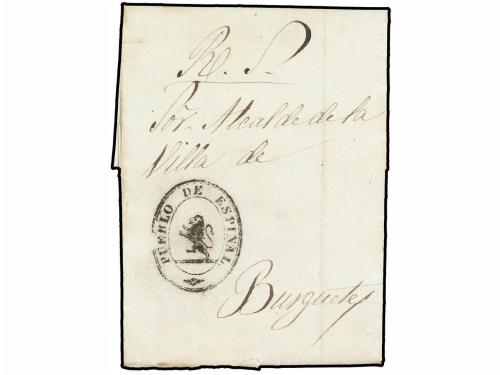 R. S.
Sor. Alcalde de la
Villa de
PUEBLO DE ESPINAL
Burguete